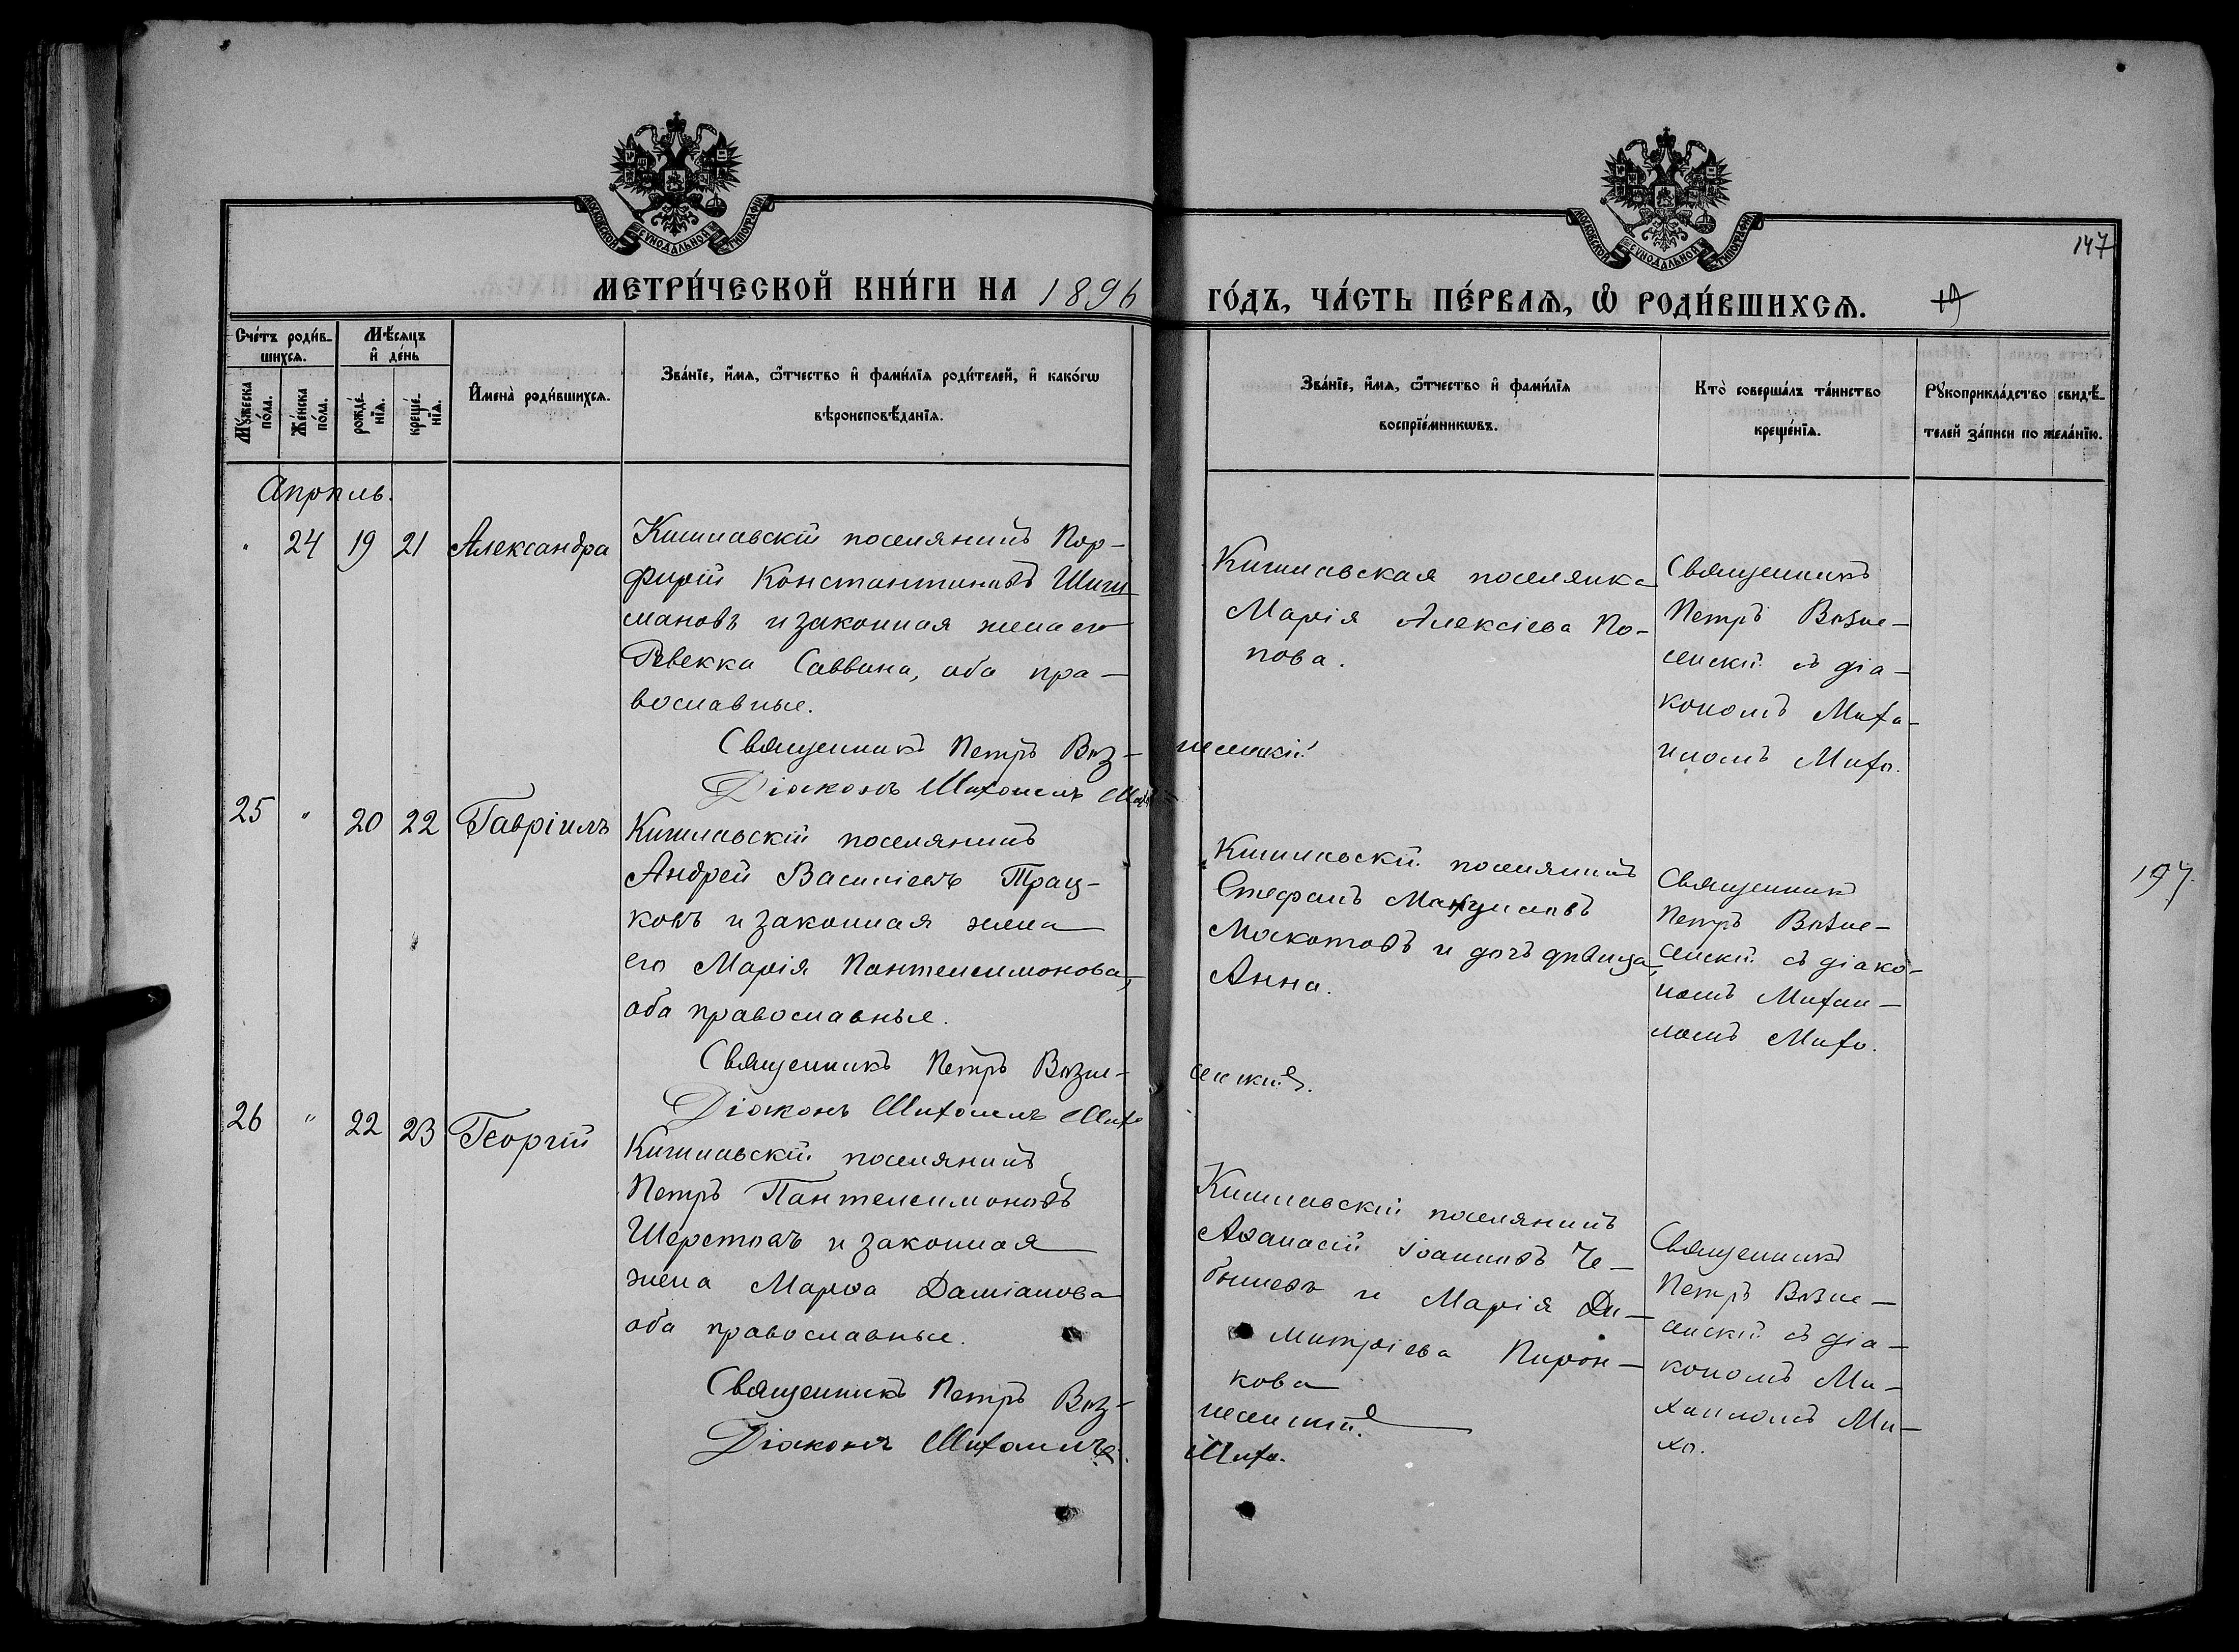 МОСКОВСКОЙ СУНОДАЛЬНОЙ ТИПОГРАФІИ
МОСКОВСКОЙ СУНОДАЛЬНОЙ ТИПОГРАФІИ
147
МЕТРИ́ЧЕСКОЙ КНИ́ГИ НА 1896
ГО́ДЪ, ЧА́СТЬ ПЕ́РВАѦ, Ѡ РОДИ́ВШИХСѦ.
19
Сче́тъ роди́в-
шихсѧ.
Мꙋ́жеска по́ла.
Же́нска по́ла.
Мѣ́сѧцъ
и де́нь
рожде́-
нїѧ.
креще́-
нїѧ.
Имена̀ роди́вшихсѧ.
Зва́нїе, и́мѧ, ѻ҆́тчество и҆ фами́лїѧ роди́телей, и҆ како́гѡ
вѣроисповѣ́данїѧ.
Зва́нїе, и́мѧ, ѻ҆́тчество и҆ фами́лїѧ
воспрїе́мникѡвъ.
Кто̀ соверша́лъ та́инство
креще́нїѧ.
Рꙋкоприкла́дство свидѣ́-
телей за́писи по жела́нїю.
Апрѣль.
" 24 19 21 Александра
Кишлавскій поселянинъ Пор-
фирій Константиновъ Шиш-
мановъ и законная жена его
Ревекка Саввина, оба пра-
вославные.
Священникъ Петръ Воз-
несенскій
Діаконъ Михаилъ Михо
Кишлавская поселянка
Марія Алексіева По-
пова.
Священникъ
Петръ Возне-
сенскій съ діа-
кономъ Миха-
иломъ Михо.
25 " 20 22 Гавріилъ
Кишлавскій поселянинъ
Андрей Василіевъ Трац-
ковъ и законная жена
его Марія Пантелеимонова,
оба православные.
Священникъ Петръ Возне-
сенскій.
Діаконъ Михаилъ Михо
Кишлавскій поселянинъ
Стефанъ
и дочь дѣвица
Анна.
Священникъ
Петръ Возне-
сенскій съ діако-
номъ Михаи-
ломъ Михо.
197
26 " 22 23 Георгій
Кишлавскій поселянинъ
Петръ Пантелеимоновъ
Шерстовъ и законная
жена Марѳа Даміанова
оба православные.
Священникъ Петръ Воз-
несенскій.
Діаконъ Михаилъ
Михо.
Кишлавскій поселянинъ
Аѳанасій Іоанновъ Че-
бышевъ и Марія Ди-
митріева Пирон-
кова
Священникъ
Петръ Возне-
сенскій съ діа-
кономъ Ми-
хаиломъ Ми-
хо.